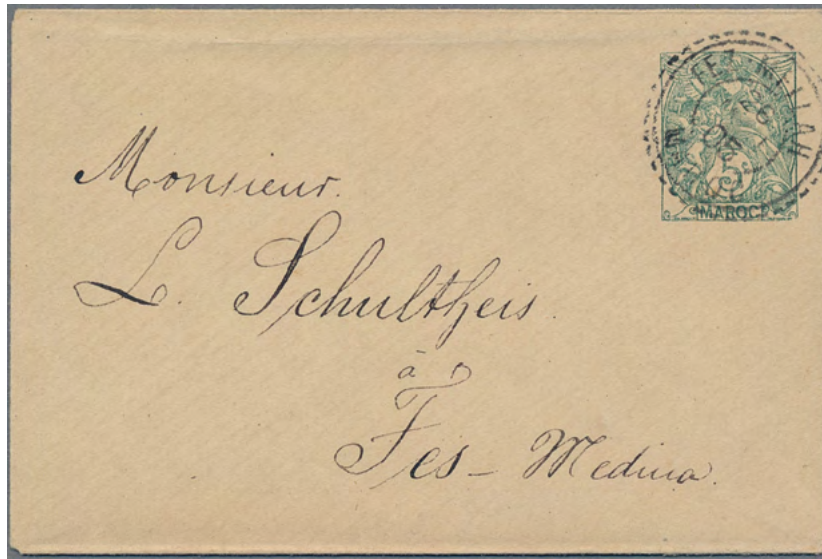 FEZ MELLAH
5
MAROC
Monsieur.
L. Schultheis.
à
Fes - Medina.